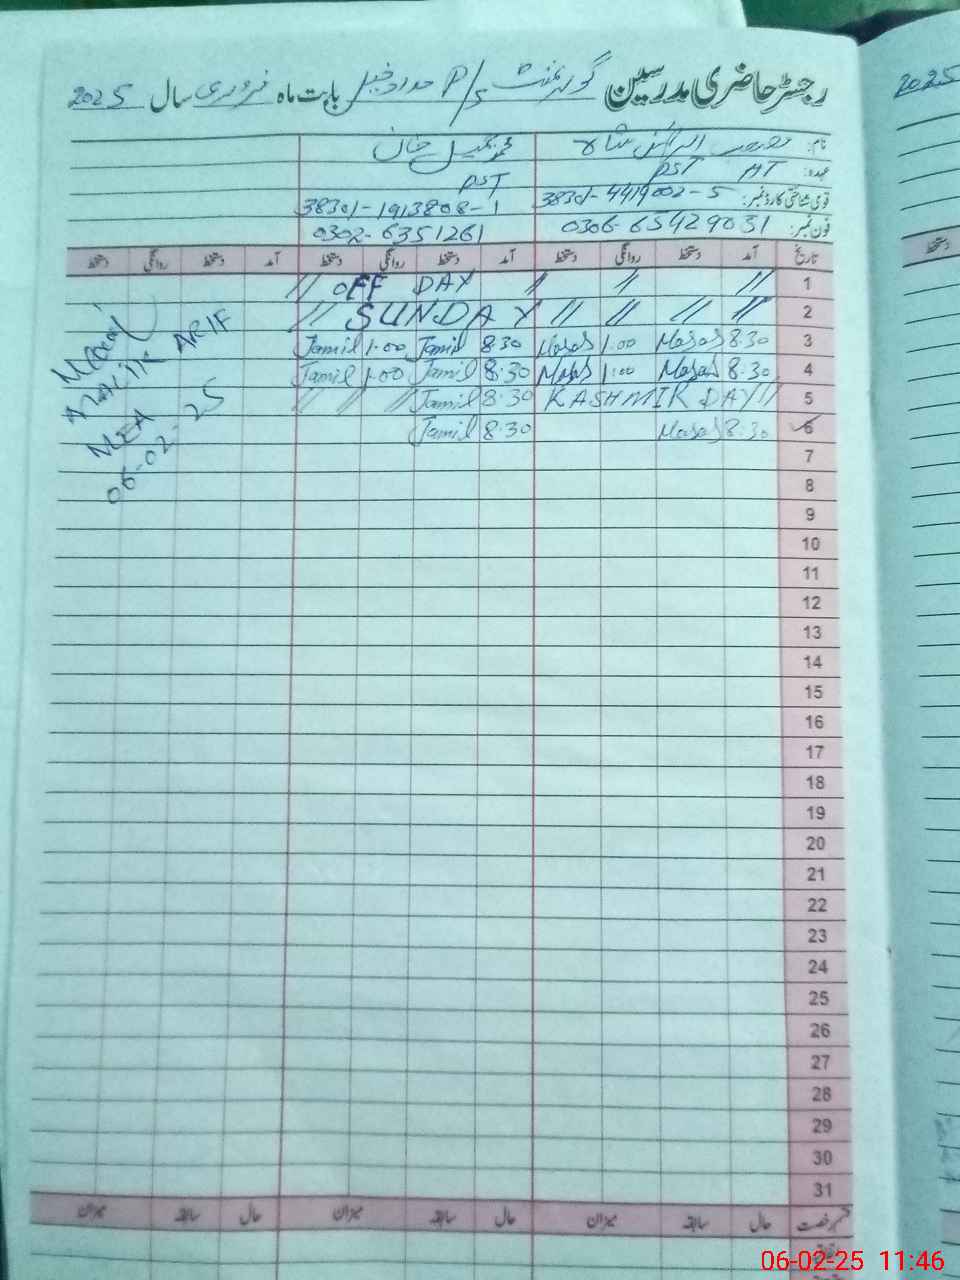 رجسٹر حاضری مدرسین گورنمنٹ P/S بابت ماہ فروری سال 2025
2025
نام: شاہ محمد جمیل خان
عہدہ: PST HT PST
قومی شناختی کارڈ نمبر: 38301-4419002-5 38301-1913808-1
فون نمبر: 0306-6542903 0302-6351261
تاریخ آمد دستخط روانگی دستخط آمد دستخط روانگی دستخط آمد دستخط روانگی دستخط
1 // // // OFF DAY //
2 // // // // SUNDAY //
3 8:30 1:00 8:30 Jamil 1:00 Jamil
4 8:30 1:00 8:30 Jamil 1:00 Jamil
5 // KASHMIR DAY 8:30 Jamil // // //
6 8:30 8:30 Jamil
MALIK ARIF
MEA
06-02-25
7
8
9
10
11
12
13
14
15
16
17
18
19
20
21
22
23
24
25
26
27
28
29
30
31
حال سابقہ میزان حال سابقہ میزان حال سابقہ میزان
06-02-25 11:46